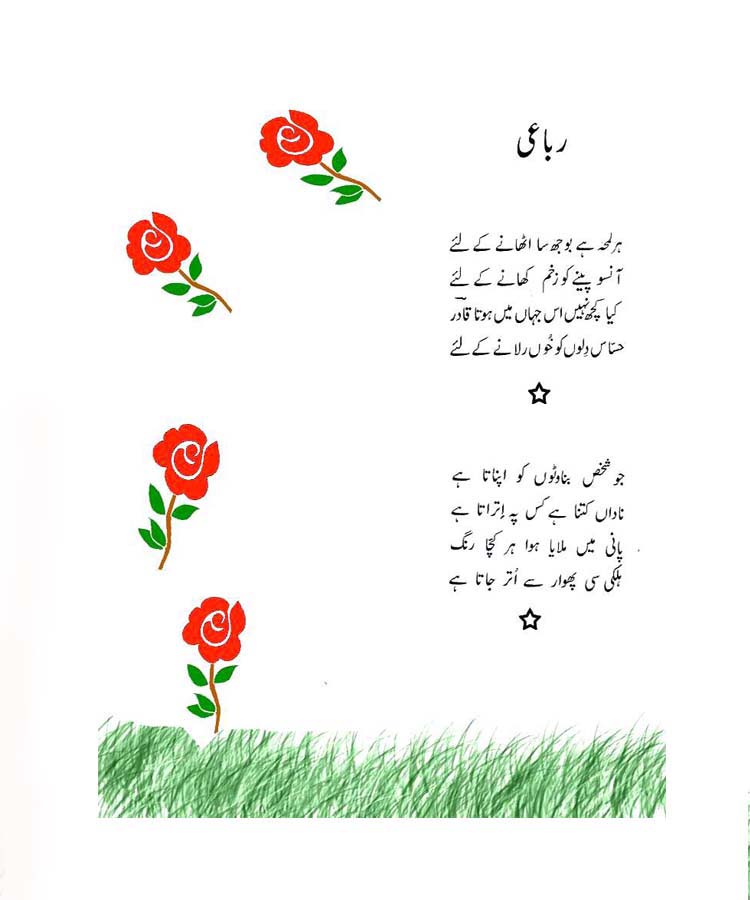 رباعی
ہر لمحہ ہے بوجھ سا اٹھانے کے لئے
آنسو پینے کو زخم کھانے کے لئے
کیا کچھ نہیں اس جہاں میں ہوتا قادرؔ
حسّاس دِلوں کو خُوں رلانے کے لئے
جو شخص بناوٹوں کو اپناتا ہے
ناداں کتنا ہے کس پہ اِتراتا ہے
پانی میں ملایا ہوا ہر کچّا رنگ
ہلکی سی پھوار سے اُتر جاتا ہے